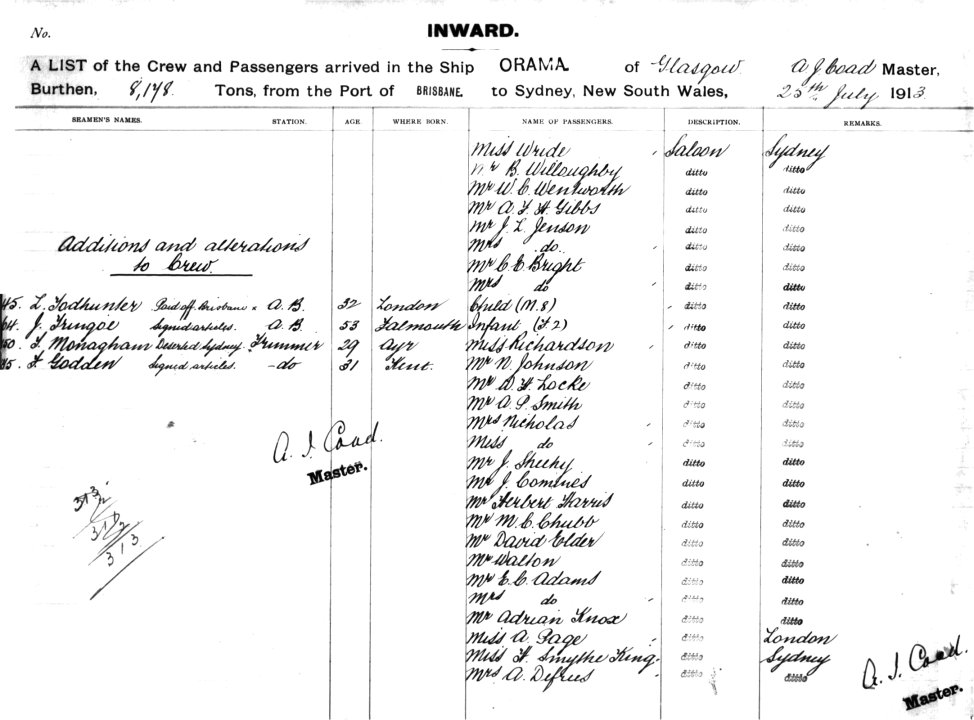 No.
INWARD.
A LIST of the Crew and Passengers arrived in the Ship ORAMA of Glasgow A J Coad Master,
Burthen, 8,178. Tons, from the Port of BRISBANE. to Sydney, New South Wales, 25th July 1913.
SEAMEN'S NAMES. STATION. AGE. WHERE BORN. NAME OF PASSENGERS. DESCRIPTION. REMARKS.
Miss Wride Saloon Sydney
Mr B. Willoughby ditto ditto
Mr W. C. Wentworth ditto ditto
Mr A. F. H. Gibbs ditto ditto
Mr J. L. Jenson ditto ditto
Additions and alterations Mrs do. ditto ditto
to Crew. Mr C. E. Bright ditto ditto
Mrs do ditto ditto
45. L. Todhunter Paid off Brisbane A.B. 32 London Child (M.8) ditto ditto
64. J. Tringoe Signed articles. A.B. 53 Falmouth Infant (F 2) ditto ditto
50. T. Monagham Deserted Sydney Trimmer 29 Ayr Miss Richardson ditto ditto
85. F. Godden Signed articles. - do 31 Kent. Mr N. Johnson ditto ditto
Mr W. H. Locke ditto ditto
Mr A. P. Smith ditto ditto
Mrs Nicholas ditto ditto
Miss do ditto ditto
A. J. Coad. Mr J. Sheehy ditto ditto
Master. Mr J. Comines ditto ditto
Mr Herbert Harris ditto ditto
Mr M. C. Chubb ditto ditto
Mr David Elder ditto ditto
313
Mr Walton ditto ditto
Mr E. C. Adams ditto ditto
Mrs do ditto ditto
Mr Adrian Knox ditto ditto
Miss A. Page ditto London
Miss H. Smythe King. ditto Sydney
Mrs A. Defries ditto ditto
A. J. Coad.
Master.